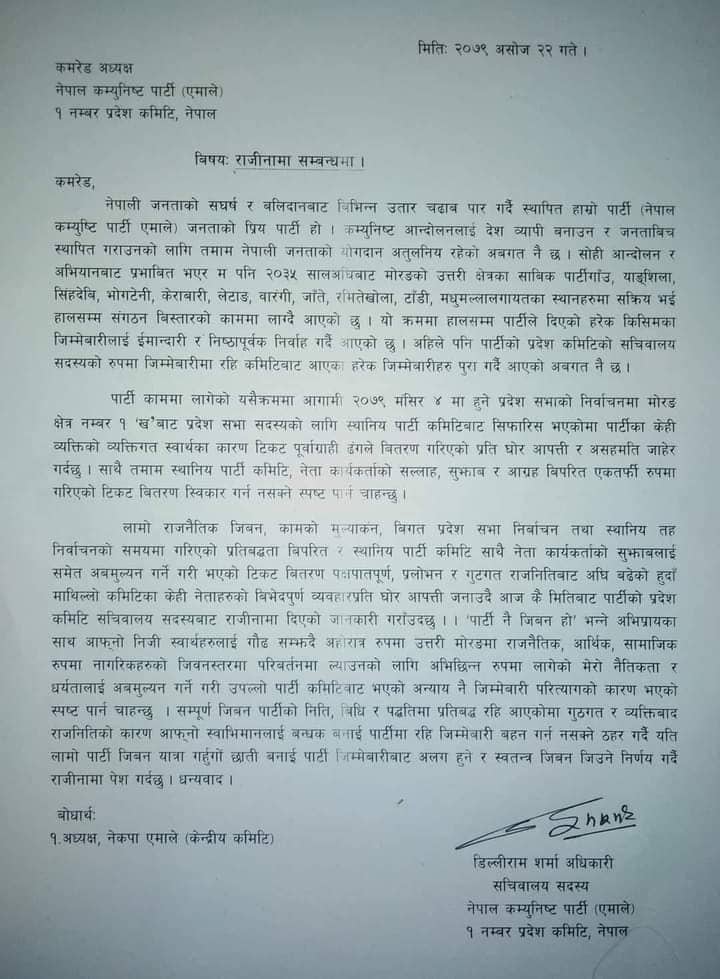 मिति: २०७९ असोज २२ गते ।
कमरेड अध्यक्ष
नेपाल कम्युनिष्ट पार्टी (एमाले)
१ नम्बर प्रदेश कमिटि, नेपाल
विषय: राजीनामा सम्बन्धमा ।
कमरेड,
नेपाली जनताको सघर्ष र बलिदानबाट बिभिन्न उतार चढाब पार गर्दै स्थापित हाम्रो पार्टी (नेपाल
कम्युष्टि पार्टी एमाले) जनताको प्रिय पार्टी हो । कम्युनिष्ट आन्दोलनलाई देश व्यापी बनाउन र जनताबिच
स्थापित गराउनको लागि तमाम नेपाली जनताको योगदान अतुलनिय रहेको अबगत नै छ । सोही आन्दोलन र
अभियानबाट प्रभाबित भएर म पनि २०३५ सालअघिबाट मोरङको उत्तरी क्षेत्रका साबिक पार्टीगाँउ, याङ्शिला,
सिंहदेबि, भोगटेनी, केराबारी, लेटाङ, वारंगी, जाँते, रमितेखोला, टाँडी, मधुमल्लालगायतका स्थानहरुमा सक्रिय भई
हालसम्म संगठन बिस्तारको काममा लाग्दै आएको छु । यो क्रममा हालसम्म पार्टीले दिएको हरेक किसिमका
जिम्मेबारीलाई ईमान्दारी र निष्ठापूर्वक निर्वाह गर्दै आएको छु । अहिले पनि पार्टीको प्रदेश कमिटिको सचिवालय
सदस्यको रुपमा जिम्मेबारीमा रहि कमिटिबाट आएका हरेक जिम्मेबारीहरु पुरा गर्दै आएको अबगत नै छ ।
पार्टी काममा लागेको यसैक्रममा आगामी २०७९ मंसिर ४ मा हुने प्रदेश सभाको निर्वाचनमा मोरङ
क्षेत्र नम्बर १ 'ख'बाट प्रदेश सभा सदस्यको लागि स्थानिय पार्टी कमिटिबाट सिफारिस भएकोमा पार्टीका केही
व्यक्तिको व्यक्तिगत स्वार्थका कारण टिकट पूर्वाग्राही ढंगले बितरण गरिएको प्रति घोर आपत्ती र असहमति जाहेर
गर्दछु । साथै तमाम स्थानिय पार्टी कमिटि, नेता कार्यकर्ताको सल्लाह, सुझाब र आग्रह बिपरित एकतर्फी रुपमा
गरिएको टिकट बितरण स्विकार गर्न नसक्ने स्पष्ट पार्न चाहन्छु ।
लामो राजनैतिक जिबन, कामको मुल्याकंन, बिगत प्रदेश सभा निर्बाचन तथा स्थानिय तह
निर्वाचनको समयमा गरिएको प्रतिबद्धता बिपरित र स्थानिय पार्टी कमिटि साथै नेता कार्यकर्ताको सुझाबलाई
समेत अबमुल्यन गर्ने गरी भएको टिकट बितरण पक्षपातपूर्ण, प्रलोभन र गुटगत राजनितिबाट अघि बढेको हुदाँ
माथिल्लो कमिटिका केही नेताहरुको बिभेदपुर्ण व्यवहारप्रति घोर आपत्ती जनाउदै आज कै मितिबाट पार्टीको प्रदेश
कमिटि सचिवालय सदस्यबाट राजीनामा दिएको जानकारी गराउँदछु । । 'पार्टी नै जिबन हो' भन्ने अभिप्रायका
साथ आफ्नो निजी स्वार्थहरुलाई गौढ सम्झदै अहोरात्र रुपमा उत्तरी मोरङमा राजनैतिक, आर्थिक, सामाजिक
रुपमा नागरिकहरुको जिवनस्तरमा परिबर्तनमा ल्याउनको लागि अभिछिन्न रुपमा लागेको मेरो नैतिकता र
धर्यतालाई अबमुल्यन गर्ने गरी उपल्लो पार्टी कमिटिबाट भएको अन्याय नै जिम्मेबारी परित्यागको कारण भएको
स्पष्ट पार्न चाहन्छु । सम्पूर्ण जिबन पार्टीको निति, बिधि र पद्धतिमा प्रतिबद्ध रहि आएकोमा गुठगत र व्यक्तिबाद
राजनितिको कारण आफ्नो स्वाभिमानलाई बन्धक बनाई पार्टीमा रहि जिम्मेबारी बहन गर्न नसक्ने ठहर गर्दै यति
लामो पार्टी जिबन यात्रा गर्हुगों छाती बनाई पार्टी जिम्मेबारीबाट अलग हुने र स्वतन्त्र जिबन जिउने निर्णय गर्दै
राजीनामा पेश गर्दछु । धन्यवाद ।
बोधार्थ:
१.अध्यक्ष, नेकपा एमाले (केन्द्रीय कमिटि)
डिल्लीराम शर्मा अधिकारी
सचिवालय सदस्य
नेपाल कम्युनिष्ट पार्टी (एमाले)
१ नम्बर प्रदेश कमिटि, नेपाल